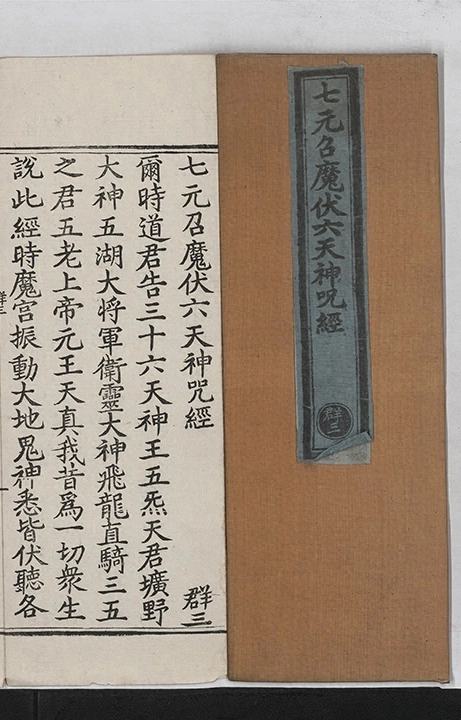 七元召魔伏六天神呪經
群三
七元召魔伏六天神呪經 群三
爾時道君告三十六天神王五炁天君壙野
大神五湖大将軍衛靈大神飛龍直騎三五
之君五老上帝元王天真我昔爲一切衆生
說此經時魔宫振動大地鬼神悉皆伏聽各
群三